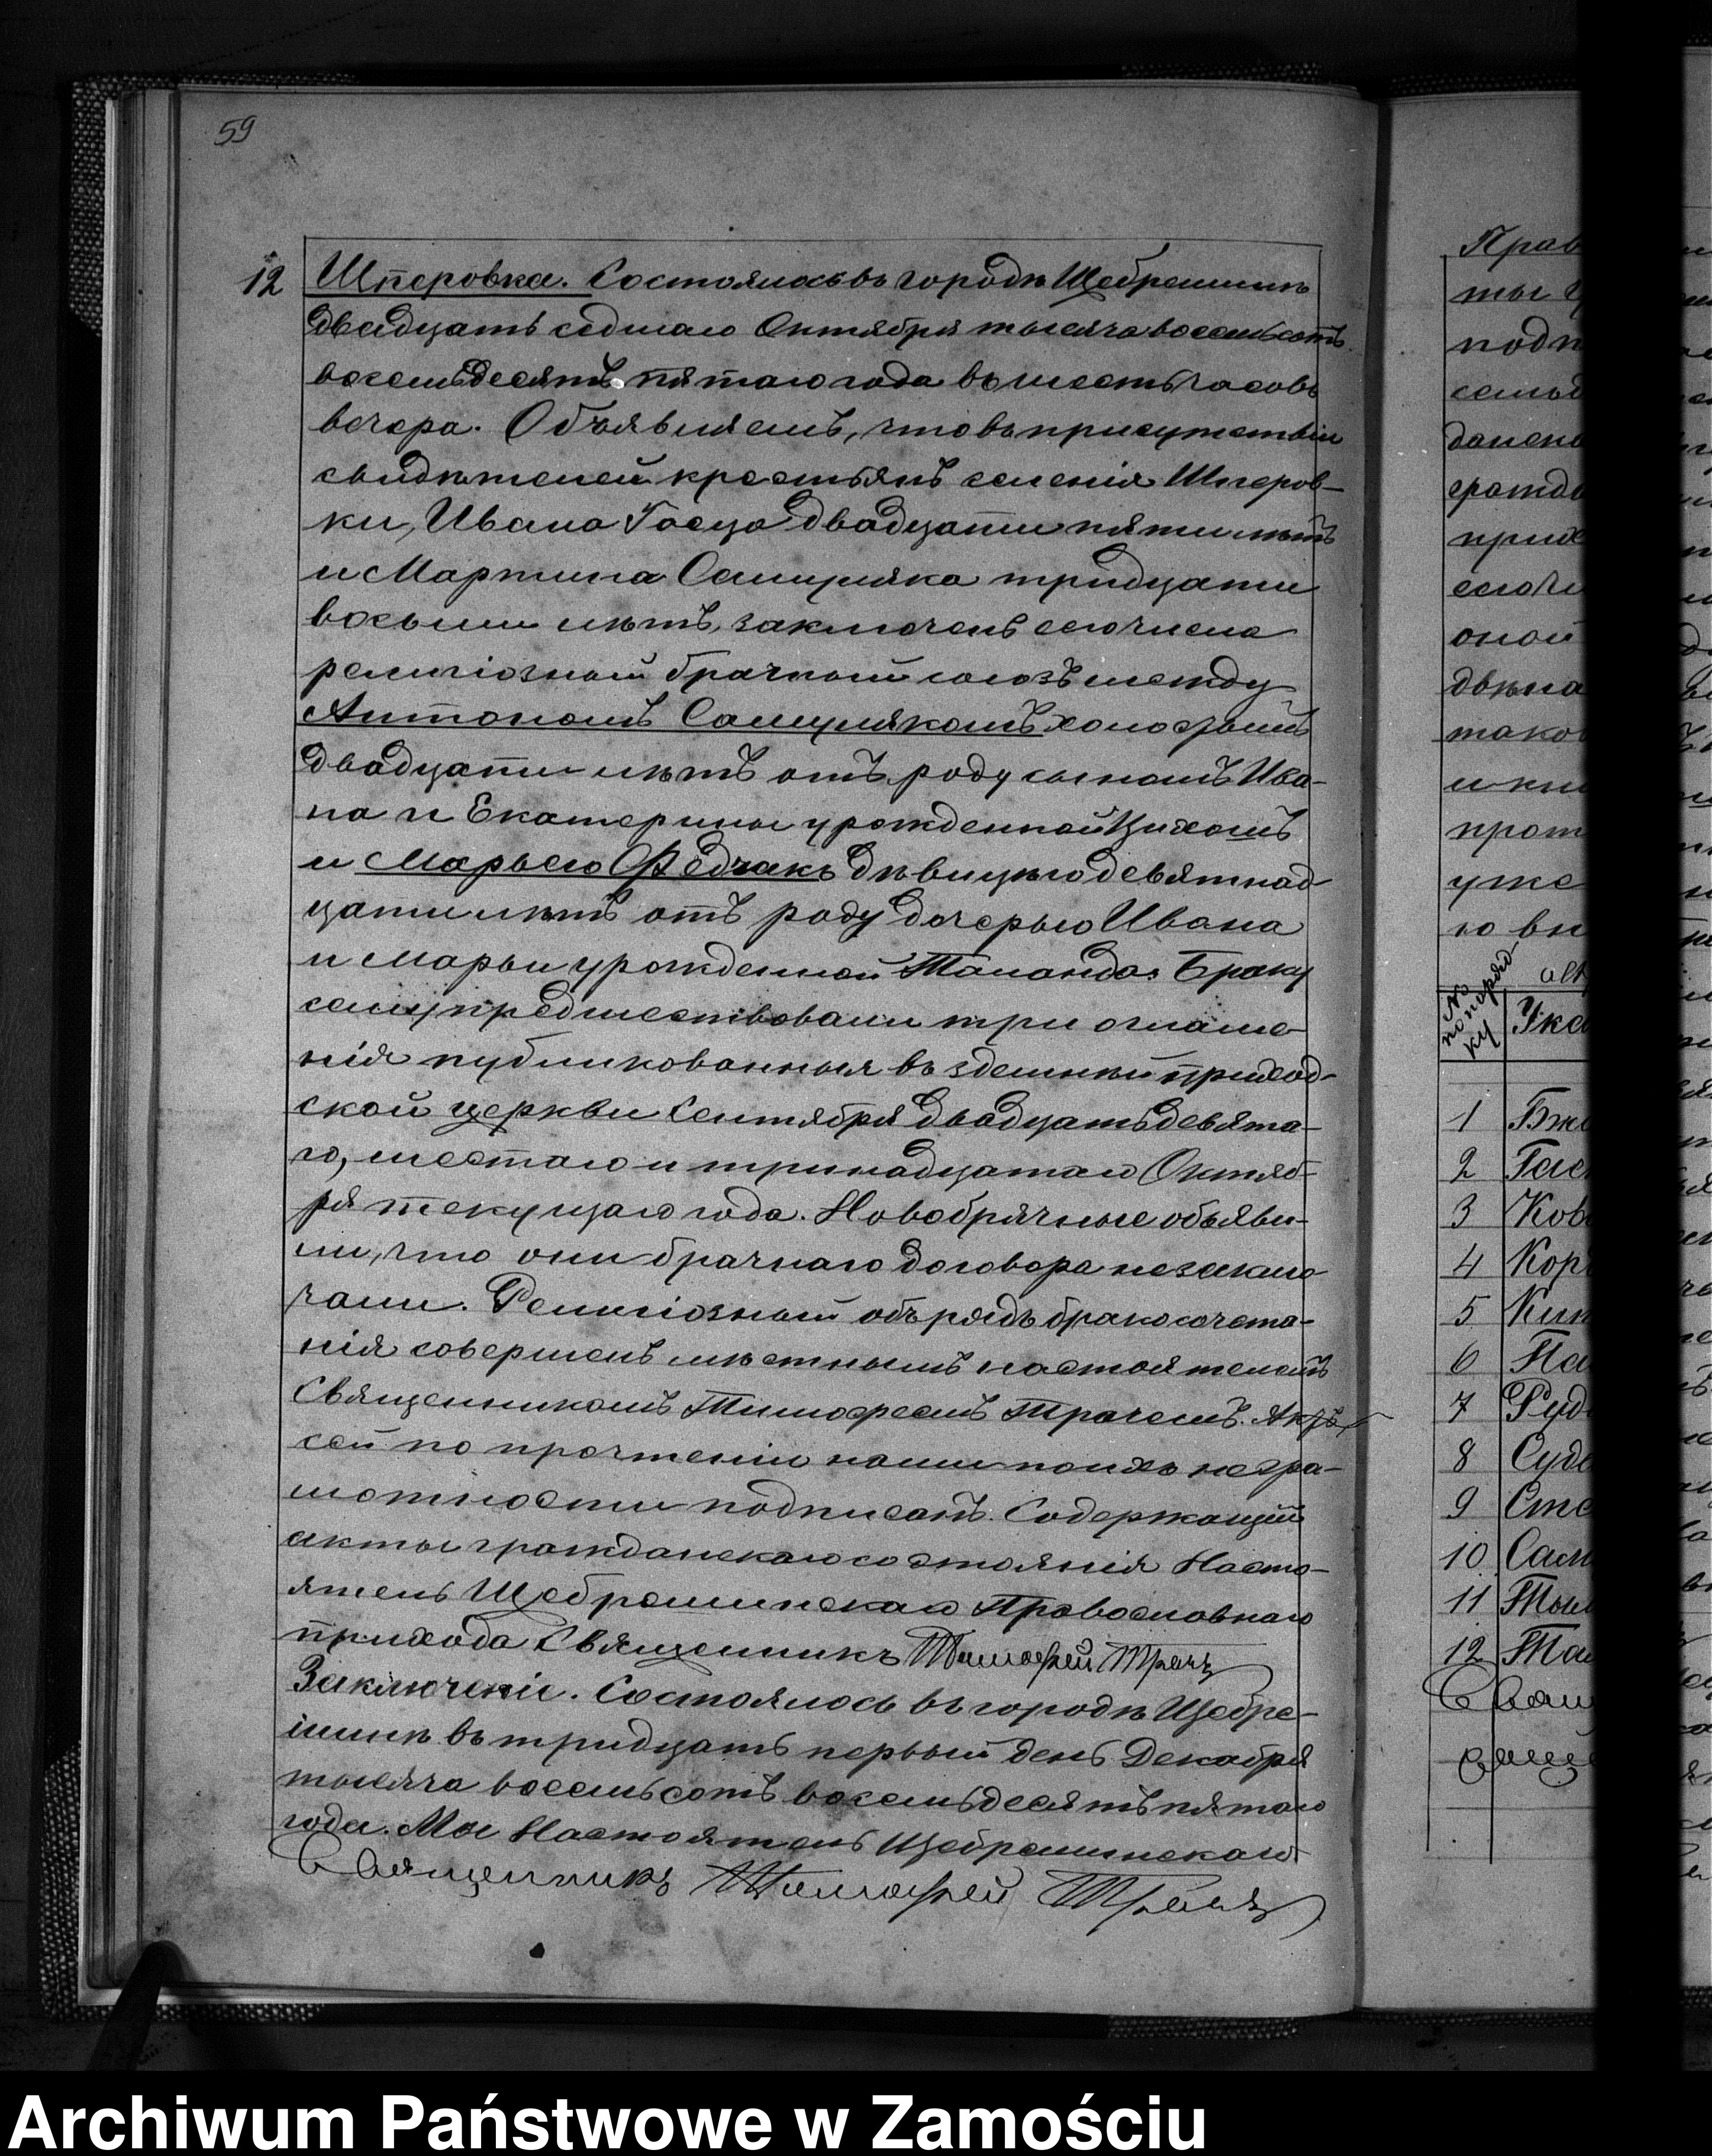 59
12 Шперовка. Состоялось въ городѣ Щебрешинѣ
двадцать седмаго Октября тысяча восемьсотъ
восемьдесятъ пятаго года въ шесть часовъ
вечера. Объявляемъ, что въ присутствіи
свидѣтелей крестьянъ селенія Шперов-
ки, Ивана двадцати пяти лѣтъ
и Мартина Самуляка тридцати
восьми лѣтъ, заключенъ сего числа
религіозный брачный союзъ между
Антономъ Самулякомъ холостымъ
двадцати лѣтъ отъ роду сыномъ Ива-
на и Екатерины урожденной
и Марьею Федчакъ дѣвицею девятнад-
цати лѣтъ отъ роду дочерью Ивана
и Марьи урожденной Таланда. Браку
сему предшествовали три оглаше-
нія публикованныя въ здешней приход-
ской церкви Сентября двадцать девята-
го, шестаго и тринадцатаго Октяб-
ря текущаго года. Новобрачные объяви-
ли, что они брачнаго договора незаклю-
чали. Религіозный обърядъ бракосочета-
нія совершенъ мѣстнымъ настоятелемъ
Священникомъ Тимофеемъ Трачемъ. Актъ
сей по прочтеніи нами по ихъ негра-
мотности подписанъ. Содержащій
акты гражданскаго состоянія Насто-
ятель Щебрешинскаго Православнаго
прихода Священникъ Тимофей Трачъ
Заключеніе. Состоялось въ городѣ Щебре-
шинѣ въ тридцать первый день Декабря
тысяча восемьсотъ восемьдесятъ пятаго
года. Мы Настоятель Щебрешинскаго
Священникъ Тимофей Трачъ
Прав
ты
подп
семьд
данск
гражда
прих
сего
оной
двѣна
таков
и кни
прот
уже
ю вн
№ по порядку
Ука
1 Бжо
2 Гас
3 Ков
4 Кор
5 Кин
6 Па
7 Руд
8 Суд
9 Сте
10 Сам
11 Тым
12 Та
Свящ
Archiwum Państwowe w Zamościu